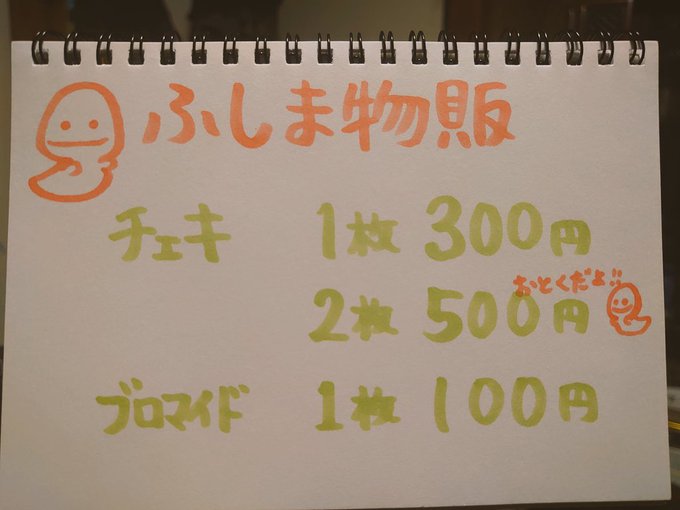 ふしま物販
チェキ 1枚 300円
おとくだよ!!
2枚 500円
ブロマイド 1枚 100円